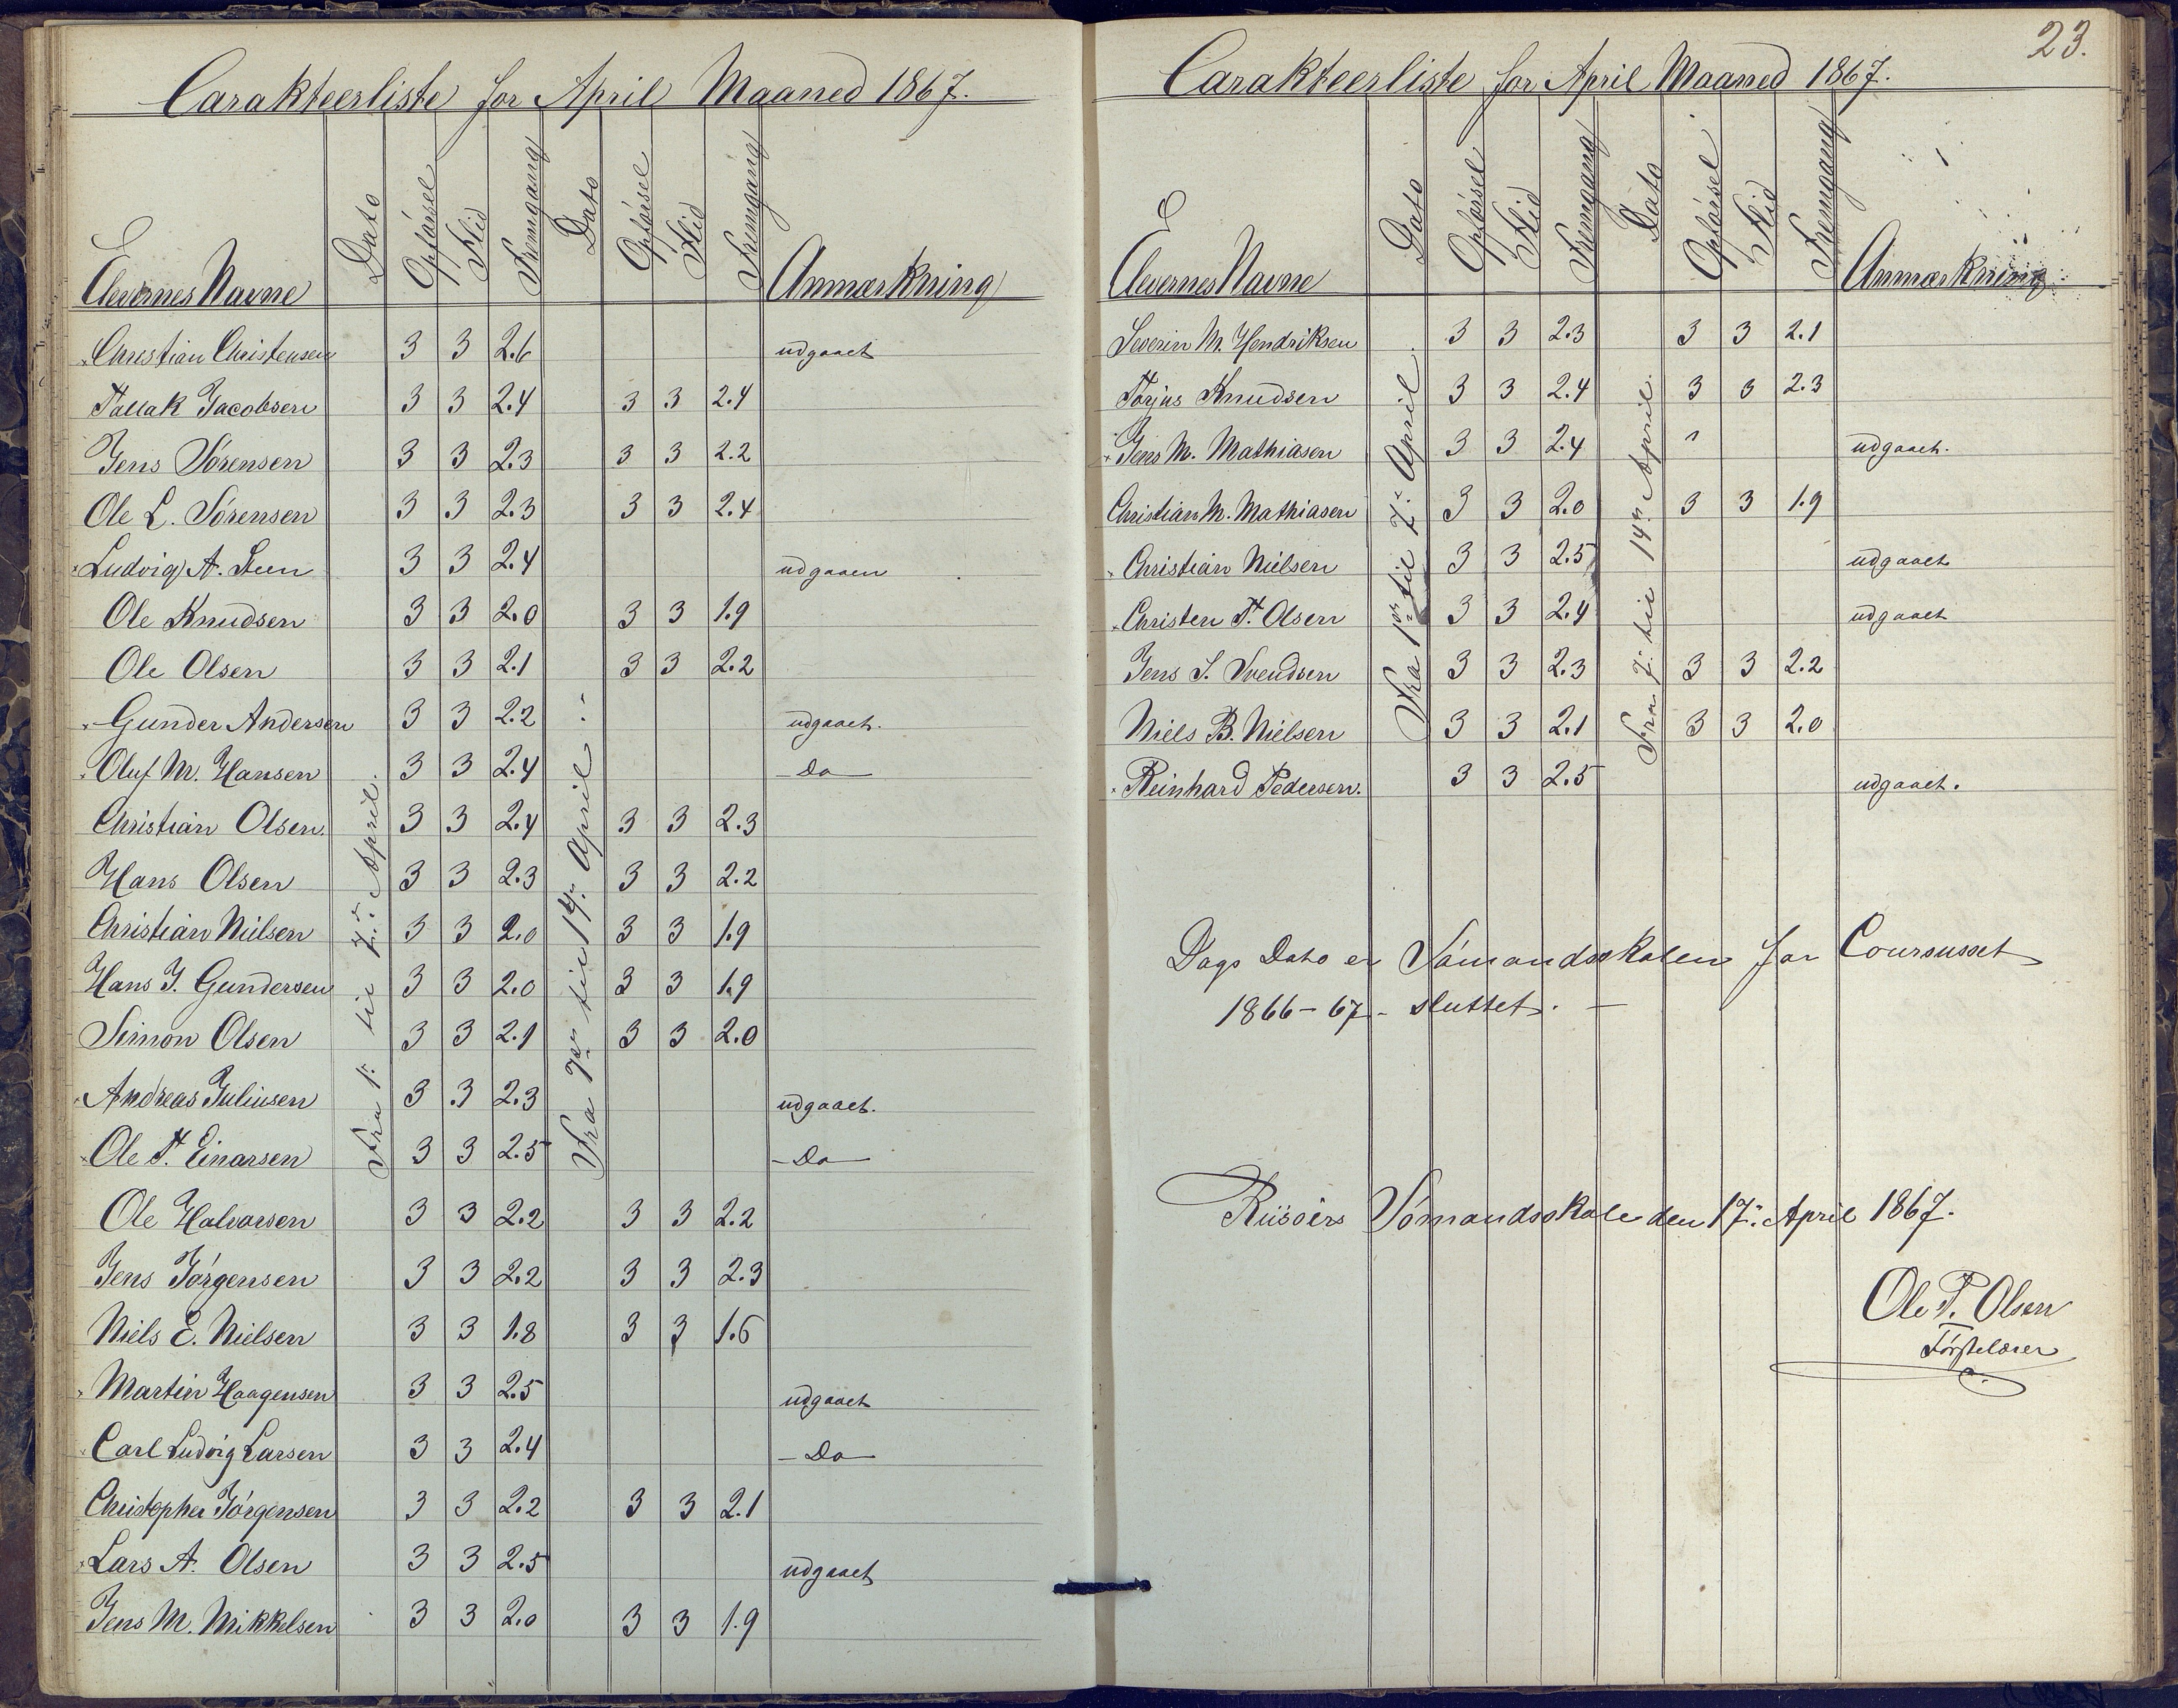 Carakteerliste for April Maaned 1867.
Elevernes Navne Dato Opførsel Flid Fremgang Dato Opførsel Flid Fremgang Anmærkning
Fra 1: til 7: April.
Fra 7de til 14: April.
Christian Christensen 3 3 2.6 udgaaet
Tallak Jacobsen 3 3 2.4 3 3 2.4
Jens Sørensen 3 3 2.3 3 3 2.2
Ole L. Sørensen 3 3 2.3 3 3 2.4
Ludvig A. Steen 3 3 2.4 udgaaen
Ole Knudsen 3 3 2.0 3 3 1.9
Ole Olsen 3 3 2.1 3 3 2.2
Gunder Andersen 3 3 2.2 udgaaet.
Oluf M. Hansen 3 3 2.4 - Do -
Christian Olsen 3 3 2.4 3 3 2.3
Hans Olsen 3 3 2.3 3 3 2.2
Christian Nielsen 3 3 2.0 3 3 1.9
Hans J. Gundersen 3 3 2.0 3 3 1.9
Simon Olsen 3 3 2.1 3 3 2.0
Andreas Juliusen 3 3 2.3 udgaaet.
Ole T. Einarsen 3 3 2.5 - Do -
Ole Halvorsen 3 3 2.2 3 3 2.2
Jens Jørgensen 3 3 2.2 3 3 2.3
Niels E. Nielsen 3 3 1.8 3 3 1.6
Martin Haagensen 3 3 2.5 udgaaet
Carl Ludvig Larsen 3 3 2.4 - Do -
Christopher Jørgensen 3 3 2.2 3 3 2.1
Lars A. Olsen 3 3 2.5 udgaaet
Jens M. Mikkelsen 3 3 2.0 3 3 1.9
23.
Carakteerliste for April Maaned 1867.
Elevernes Navne Dato Opførsel Flid Fremgang Dato Opførsel Flid Fremgang Anmærkning
Fra 1ste til 7: April.
Fra 7: til 14de April.
Severin M. Hendriksen 3 3 2.3 3 3 2.1
Torjus Knudsen 3 3 2.4 3 3 2.3
Jens M. Mathiasen 3 3 2.4 udgaaet.
Christian M. Mathiasen 3 3 2.0 3 3 1.9
Christian Nielsen 3 3 2.5 udgaaet
Christen T. Olsen 3 3 2.4 udgaaet
Jens S. Svendsen 3 3 2.3 3 3 2.2
Niels B. Nielsen 3 3 2.1 3 3 2.0
Reinhard Pedersen. 3 3 2.5 udgaaet.
Dags Dato er Sømandsskolen for Coursusset
1866-67 - sluttet. -
Riisøers Sømandsskole den 17: April 1867.
Ole P. Olsen
Førstelærer